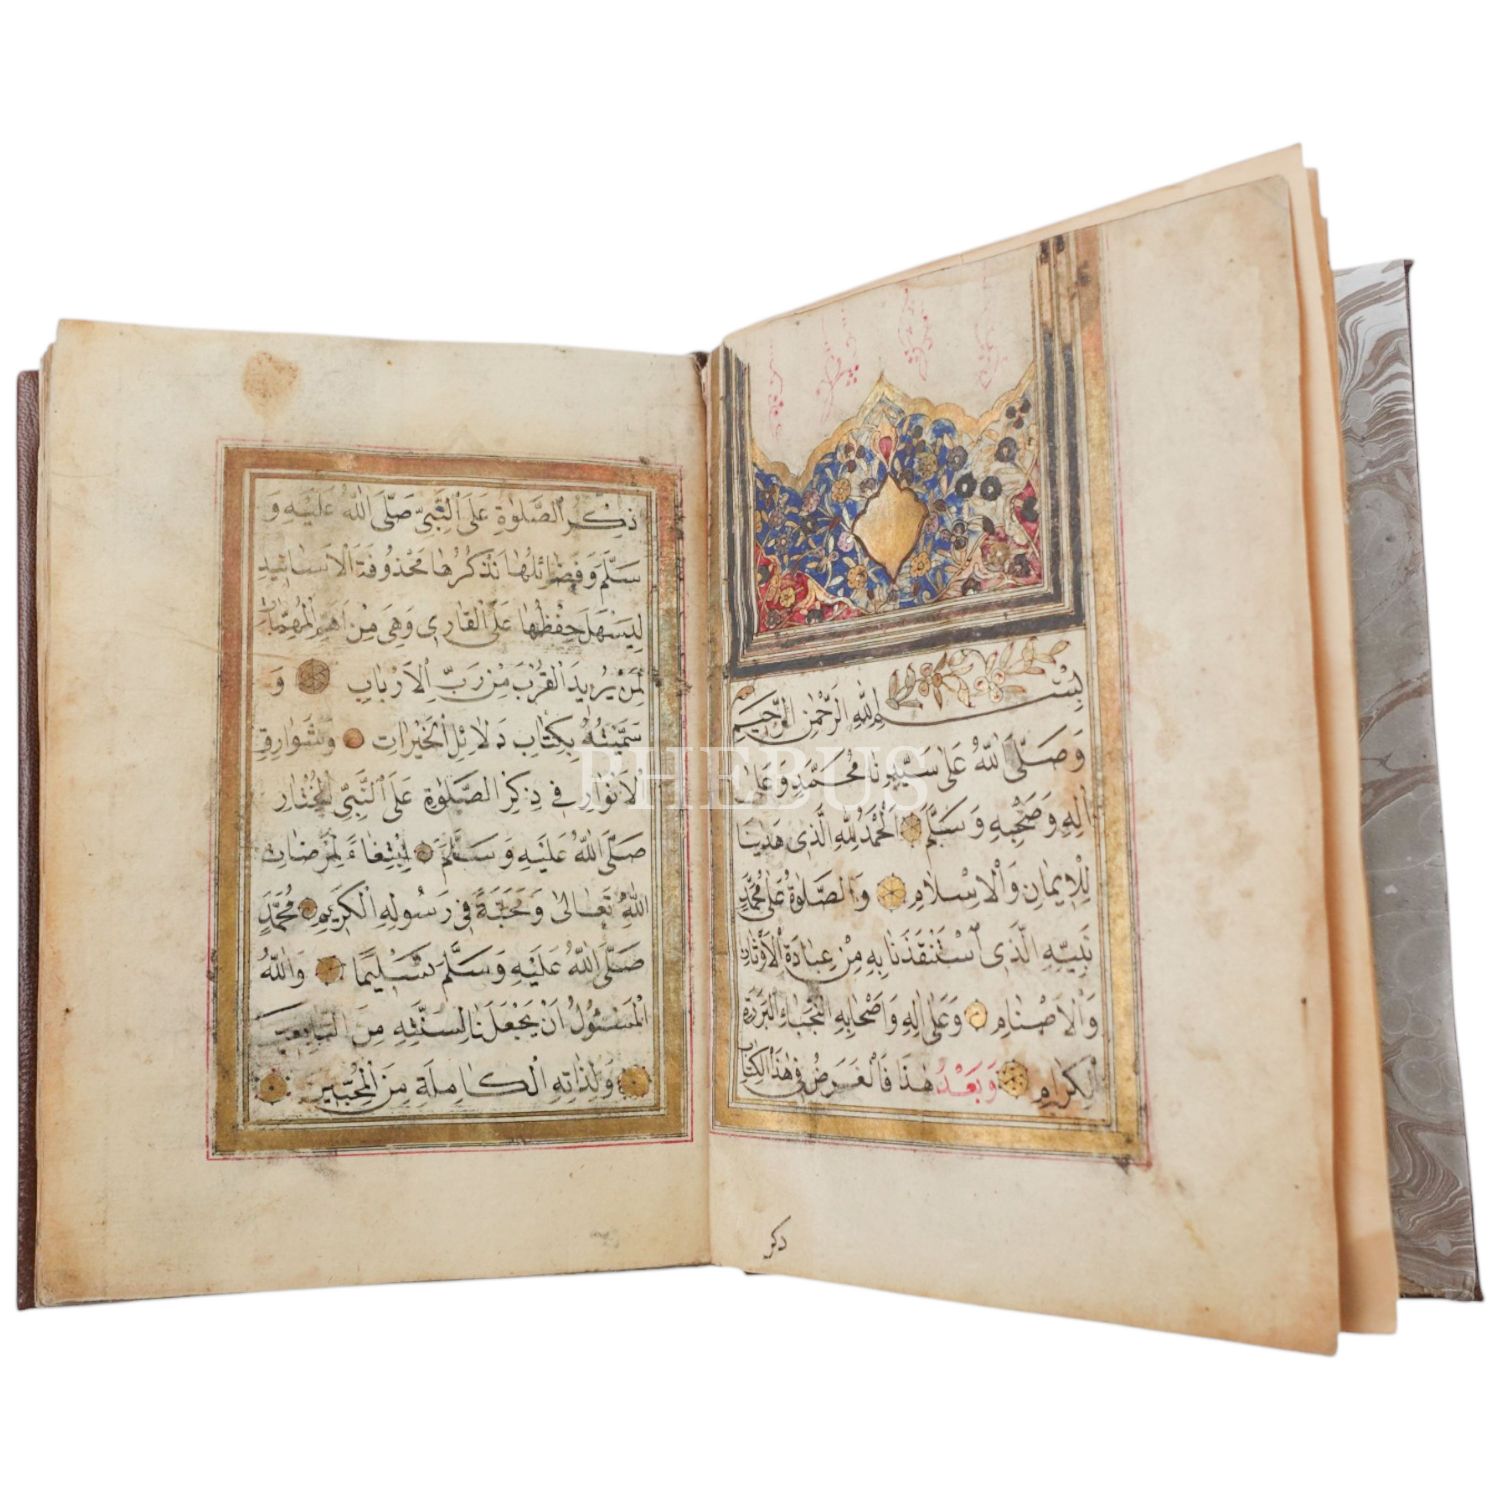 بِسْمِ اللهِ الرَّحْمٰنِ الرَّحِيْمِ
وَصَلَّى اللهُ عَلٰى سَيِّدِنَا مُحَمَّدٍ وَعَلٰى
اٰلِهِ وَصَحْبِهِ وَسَلَّمَ اَلْحَمْدُ لِلّٰهِ الَّذِى هَدٰينَا
لِلْاِيمَانِ وَالْاِسْلَامِ وَالصَّلٰوةُ عَلٰى مُحَمَّدٍ
نَبِيِّهِ الَّذِى اسْتَنْقَذَنَا بِهِ مِنْ عِبَادَةِ الْاَوْثَانِ
وَالْاَصْنَامِ وَعَلٰى اٰلِهِ وَاَصْحَابِهِ النُّجَبَاءِ الْبَرَرَةِ
الْكِرَامِ وَبَعْدُ هٰذَا فَالْغَرَضُ فِى هٰذَا الْكِتَابِ
ذكر
ذِكْرُ الصَّلٰوةِ عَلَى النَّبِىِّ صَلَّى اللهُ عَلَيْهِ وَ
سَلَّمَ وَفَضَائِلُهَا نَذْكُرُهَا مَحْذُوفَةَ الْاَسَانِيدِ
لِيَسْهَلَ حِفْظُهَا عَلَى الْقَارِى وَهِىَ مِنْ اَهَمِّ الْمُهِمَّاتِ
لِمَنْ يُرِيدُ الْقُرْبَ مِنْ رَبِّ الْاَرْبَابِ وَ
سَمَّيْتُهُ بِكِتَابِ دَلَائِلِ الْخَيْرَاتِ وَشَوَارِقِ
الْاَنْوَارِ فِى ذِكْرِ الصَّلٰوةِ عَلَى النَّبِىِّ الْمُخْتَارِ
صَلَّى اللهُ عَلَيْهِ وَسَلَّمَ اِبْتِغَاءً لِمَرْضَاتِ
اللهِ تَعَالٰى وَمَحَبَّةً فِى رَسُولِهِ الْكَرِيمِ مُحَمَّدٍ
صَلَّى اللهُ عَلَيْهِ وَسَلَّمَ تَسْلِيمًا وَاللهُ
الْمَسْئُولُ اَنْ يَجْعَلَنَا لِسُنَّتِهِ مِنَ التَّابِعِينَ
وَلِذَاتِهِ الْكَامِلَةِ مِنَ الْمُحِبِّينَ
PHEBUS